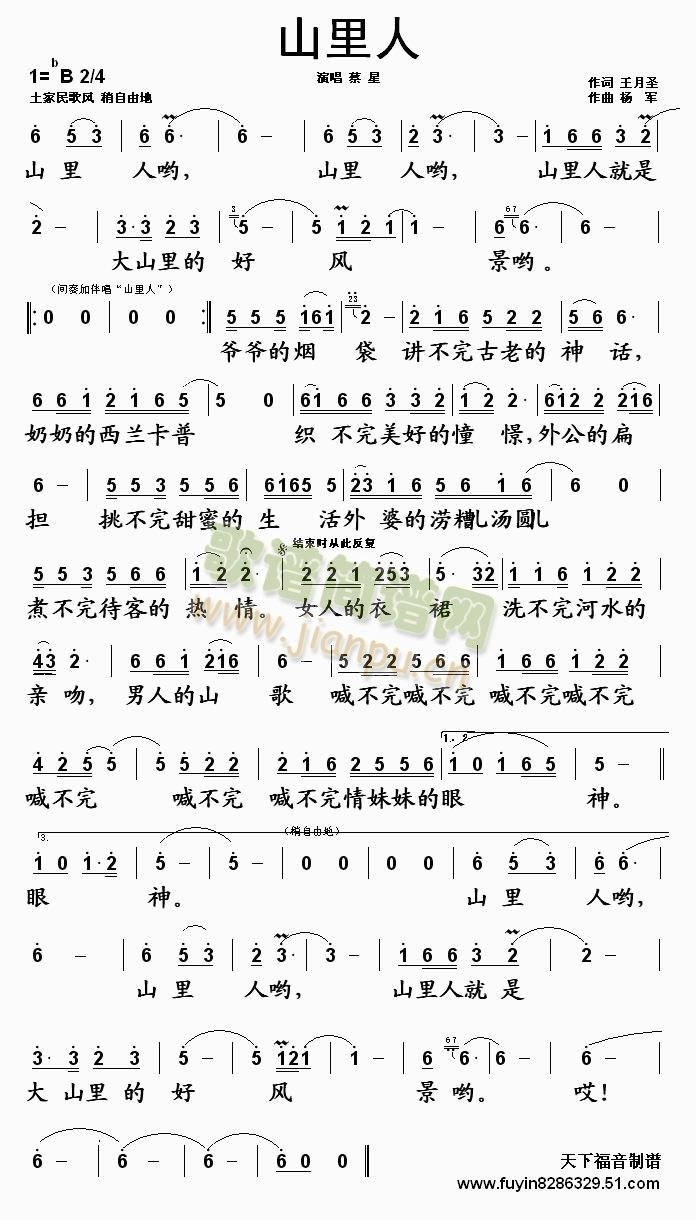 山里人
1=ᵇB 2/4
演唱 蔡 星
作词 王月圣
土家民歌风 稍自由地
作曲 杨 军
6 5 3 | 6 6· | 6 – | 6 5 3 | 2 3· | 3 – | 1 6 6 3 2
山 里 人哟, 山里 人哟, 山里人就是
2 – | 3·3 2 3 | 3 5 – | 5 1 2 1 | 1 – | 6 67 6· | 6 –
大山里的 好 风 景哟。
(间奏加伴唱“山里人”)
‖: 0 0 | 0 0 :‖ 5 5 5 161 | 23 2 – | 2 1 6 5 2 2 | 5 1 6·
爷爷的烟 袋 讲不完古老的 神 话,
6 6 1 2 1 6 5 | 5 0 | 61 6 6 3 3 2 | 1 2 2· | 612 2 216
奶奶的西兰卡普 织 不完美好的憧 憬,外公的扁
6 – | 5 5 3 5 5 6 | 6165 5 | 23 1 6 5 6 1 6 | 6 0
担 挑不完甜蜜的 生 活外 婆的涝糟儿汤圆儿
结束时从此反复
5 5 3 5 6 6 | 1 2 2· | 2 2 1 253 | 5· 32 | 1 1 6 1 2 2
煮不完待客的 热 情。 女人的衣 裙 洗不完河水的
43 2· | 6 6 1 216 | 6 – | 5 2 2 2 5 5 | 6 1 1 2 5 5
亲 吻, 男人的山 歌 喊不完喊不完 喊不完喊不完
1. 2.
4 2 5 5 | 5 5 2 2 | 2 1 6 2 5 5 6 | 1 0 1 6 5 | 5 –
喊不完 喊不完 喊不完情妹妹的眼 神。
3.
(稍自由地)
1 0 1·2 | 5 – | 5 – | 0 0 | 0 0 | 6 5 3 | 6 6·
眼 神。 山 里 人哟,
6 – | 6 5 3 | 2 3· | 3 – | 1 6 6 3 2 | 2 –
山 里 人哟, 山里人就 是
3·3 2 3 | 5 – | 5 121 | 1 – | 6 67 6· | 6 – | 6 –
大 山里 的 好 风 景 哟。 哎!
6 – | 6 – | 6 – | 6 0 0 ‖
天下福音制谱
www.fuyin8286329.51.com
歌谱简谱网
www.jianpu.cn